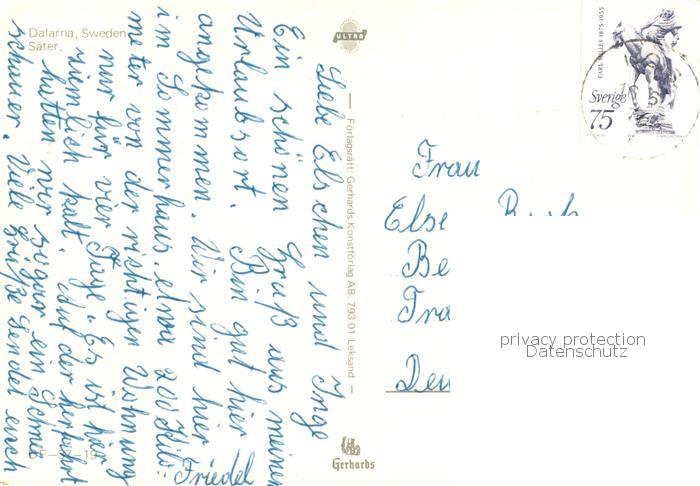 Dalarna, Sweden
Säter.
ULTRA
CARL MILLES 1875-1955
Sverige
75
Liebe Elschen und Inge
Ein schönen Gruß aus meinen
Urlaubsort. Bin gut hier
angekommen. Wir sind hier
im Sommerhaus. etwa 200 Kilo-
meter von der richtigen Wohnung
nur für vier Tage. Es ist hier
ziemlich kalt. Auf der herfahrt
hatten wir sogar ein Schnee
schauer. Viele Grüße sendet euch
Friedel
Förlagsrätt: Gerhards Konstförlag AB. 793 01 Leksand
Gerhards
Frau
Else
Be
Tra
Deu
privacy protection
Datenschutz